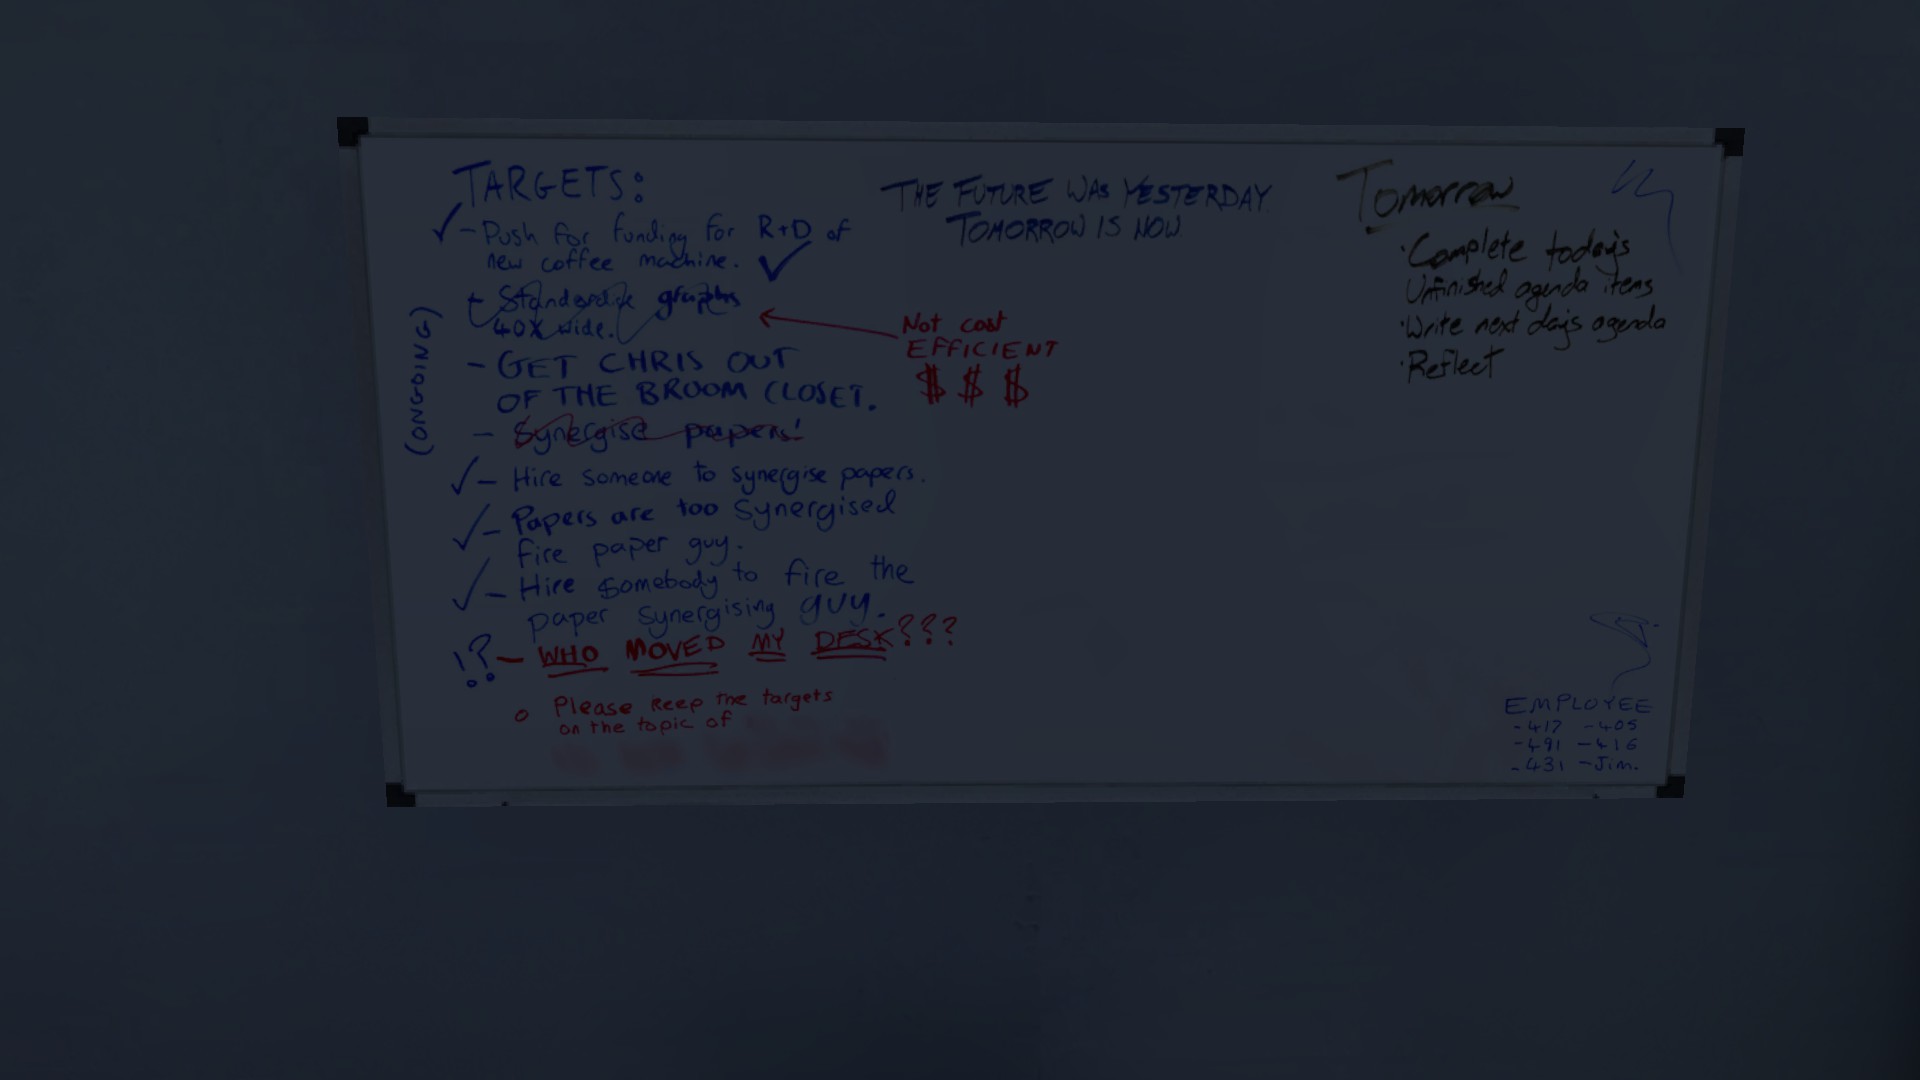 TARGETS:
- Push for funding for R+D of
new coffee machine.
- Standardise graphs
40X wide.
(ONGOING)
- GET CHRIS OUT
OF THE BROOM CLOSET.
- Synergise papers!
- Hire someone to synergise papers.
- Papers are too synergised
fire paper guy.
- Hire somebody to fire the
paper synergising guy.
!? - WHO MOVED MY DESK???
Please keep the targets
on the topic of
THE FUTURE WAS YESTERDAY
TOMORROW IS NOW
Not cost
EFFICIENT
$ $ $
Tomorrow
· Complete today's
Unfinished agenda items
· Write next day's agenda
· Reflect
EMPLOYEE
- 417 - 405
- 491 - 416
- 431 - Jim.